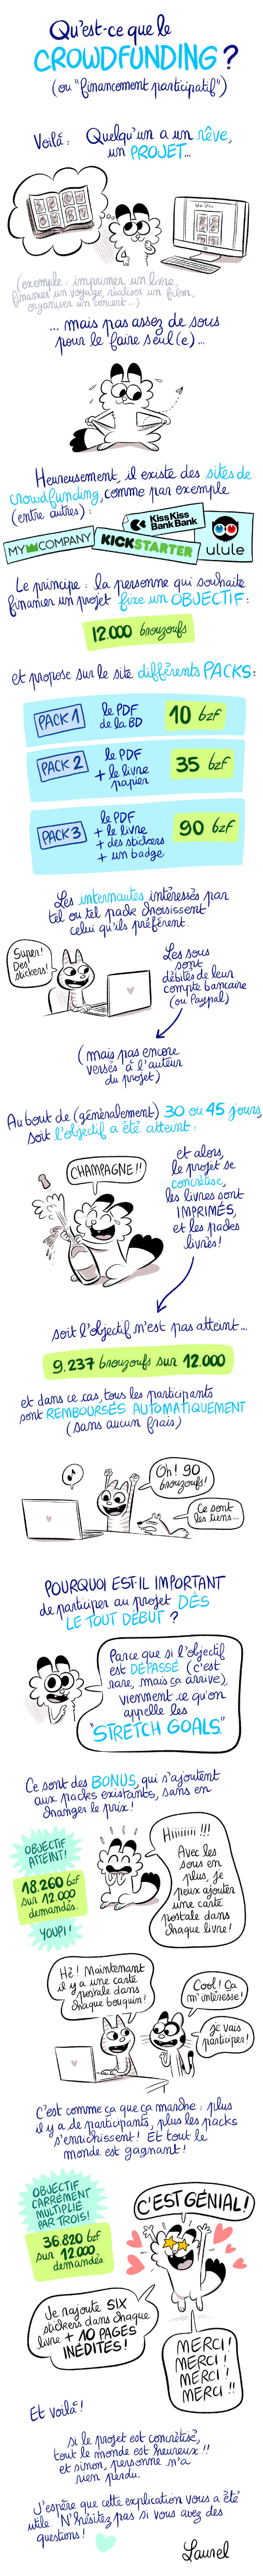 Qu'est-ce que le
CROWDFUNDING ?
(ou "financement participatif")
Voilà : Quelqu'un a un rêve,
un PROJET...
(exemple : imprimer un livre,
financer un voyage, réaliser un film,
organiser un concert...)
... mais pas assez de sous
pour le faire seul(e) ...
Heureusement, il existe des sites de
crowdfunding, comme par exemple
(entre autres) :
KissKiss
BankBank
MY COMPANY
KICKSTARTER
ulule
Le principe : la personne qui souhaite
financer un projet fixe un OBJECTIF :
12.000 brouzoufs
et propose sur le site différents PACKS :
PACK 1
le PDF
de la BD
10 bzf
PACK 2
le PDF
+ le livre
papier
35 bzf
PACK 3
le PDF
+ le livre
+ des stickers
+ un badge
90 bzf
Les internautes intéressés par
tel ou tel pack choisissent
celui qu'ils préfèrent.
Super!
Des
stickers!
Les sous
sont
débités de leur
compte bancaire
(ou Paypal)
(mais pas encore
versés à l'auteur
du projet)
Au bout de (généralement) 30 ou 45 jours,
soit l'objectif a été atteint :
CHAMPAGNE !!
et alors,
le projet se
concrétise,
les livres sont
IMPRIMÉS,
et les packs
livrés!
soit l'objectif n'est pas atteint...
9.237 brouzoufs sur 12.000
et dans ce cas, tous les participants
sont REMBOURSÉS AUTOMATIQUEMENT
(sans aucun frais)
Oh! 90
brouzoufs!
Ce sont
les tiens...
POURQUOI EST-IL IMPORTANT
de participer au projet DÈS
LE TOUT DÉBUT ?
Parce que si l'objectif
est DÉPASSÉ (c'est
rare, mais ça arrive),
viennent ce qu'on
appelle les
"STRETCH GOALS."
Ce sont des BONUS, qui s'ajoutent
aux packs existants, sans en
changer le prix!
OBJECTIF
ATTEINT!
18.260 bzf
sur 12.000
demandés.
YOUPI!
Hiiiiiii !!!
Avec les
sous en
plus, je
peux ajouter
une carte
postale dans
chaque livre!
Hé! Maintenant
il y a une carte
postale dans
chaque bouquin!
Cool! Ça
m'intéresse!
Je vais
participer!
C'est comme ça que ça marche : plus
il y a de participants, plus les packs
s'enrichissent! Et tout le
monde est gagnant!
OBJECTIF
CARRÉMENT
MULTIPLIÉ
PAR TROIS!
36.820 bzf
sur 12.000
demandés.
C'EST GÉNIAL!
Je rajoute SIX
stickers dans chaque
livre + 10 PAGES
INÉDITES!
MERCI!
MERCI!
MERCI!
MERCI!!
Et voilà!
Si le projet est concrétisé,
tout le monde est heureux!!
et sinon, personne n'a
rien perdu.
J'espère que cette explication vous a été
utile. N'hésitez pas si vous avez des
questions!
Laurel